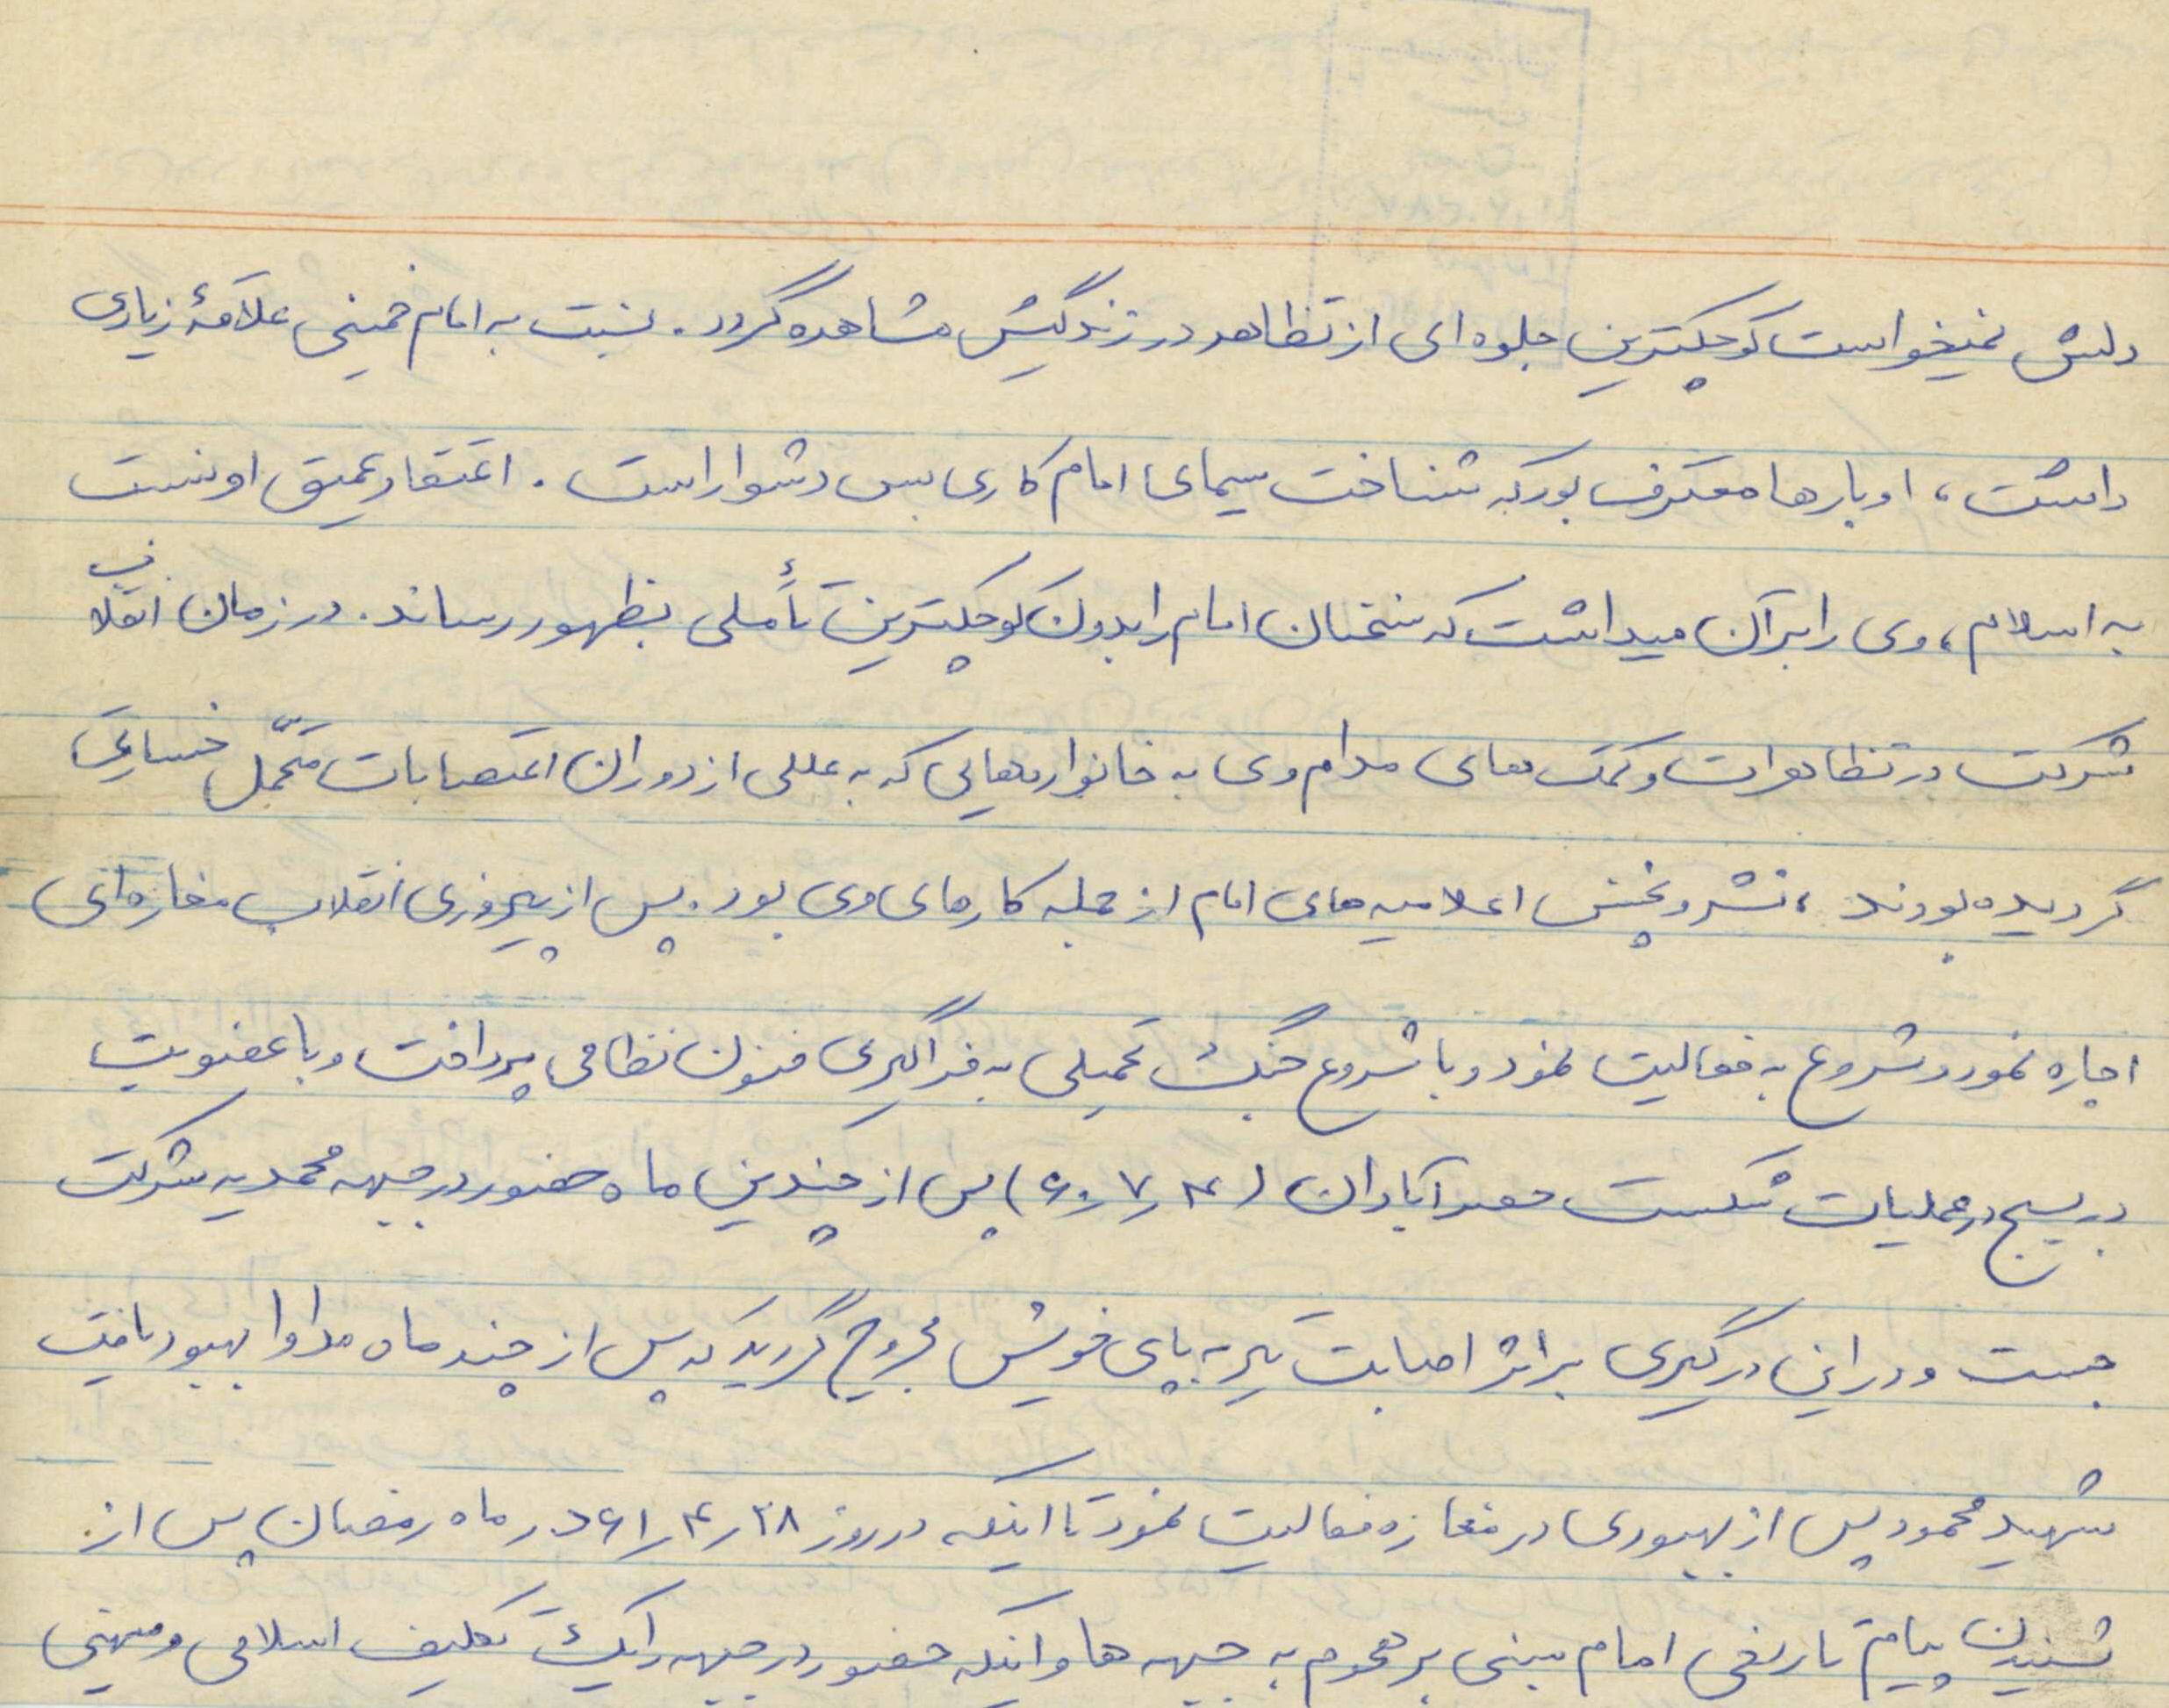 دلش نمیخواست کوچکترین جلوه ای از تظاهر در زندگیش مشاهده گردد. نسبت به امام خمینی علاقهٔ زیادی
داشت، او بارها معترف بود که شناخت سیمای امام کاری بس دشوار است. اعتقاد عمیق او نسبت
به اسلام، وی را برآن میداشت که سخنان امام را بدون کوچکترین تأملی بظهور رساند. در زمان انقلاب
شرکت در تظاهرات و کمک های مدام وی به خانواده‌هایی که به عللی از دوران اعتصابات متحمّل خساراتی
گردیده بودند، نشر و پخش اعلامیه های امام از جمله کارهای وی بود. پس از پیروزی انقلاب مغازه ای
اجاره نمود و شروع به فعالیت نمود و با شروع جنگ تحمیلی به فراگیری فنون نظامی پرداخت و با عضویت
در بسیج در عملیات شکست حصر آبادان (۶۰/۷/۴) پس از چندین ماه حضور در جبهه محمدیه شرکت
جست و در این درگیری بر اثر اصابت تیر به پای خویش مجروح گردید که پس از چند ماه مداوا بهبود یافت
شهید محمود پس از بهبودی در مغازه فعالیت نمود تا اینکه در روز ۶۱/۴/۲۸ در ماه رمضان پس از
شنیدن پیام تاریخی امام مبنی بر هجوم به جبهه ها و اینکه حضور در جبهه را یک تکلیف اسلامی و میهنی